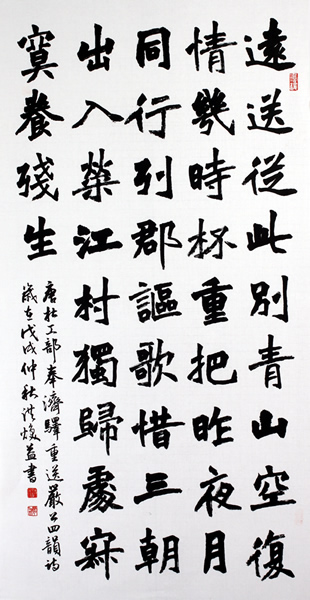 遠送從此別青山空復
情幾時杯重把昨夜月
同行列郡謳歌惜三朝
出入榮江村獨歸處寂
寞養殘生
唐杜工部奉濟驛重送嚴公四韻詩
歲在戊戌仲秋洪益書